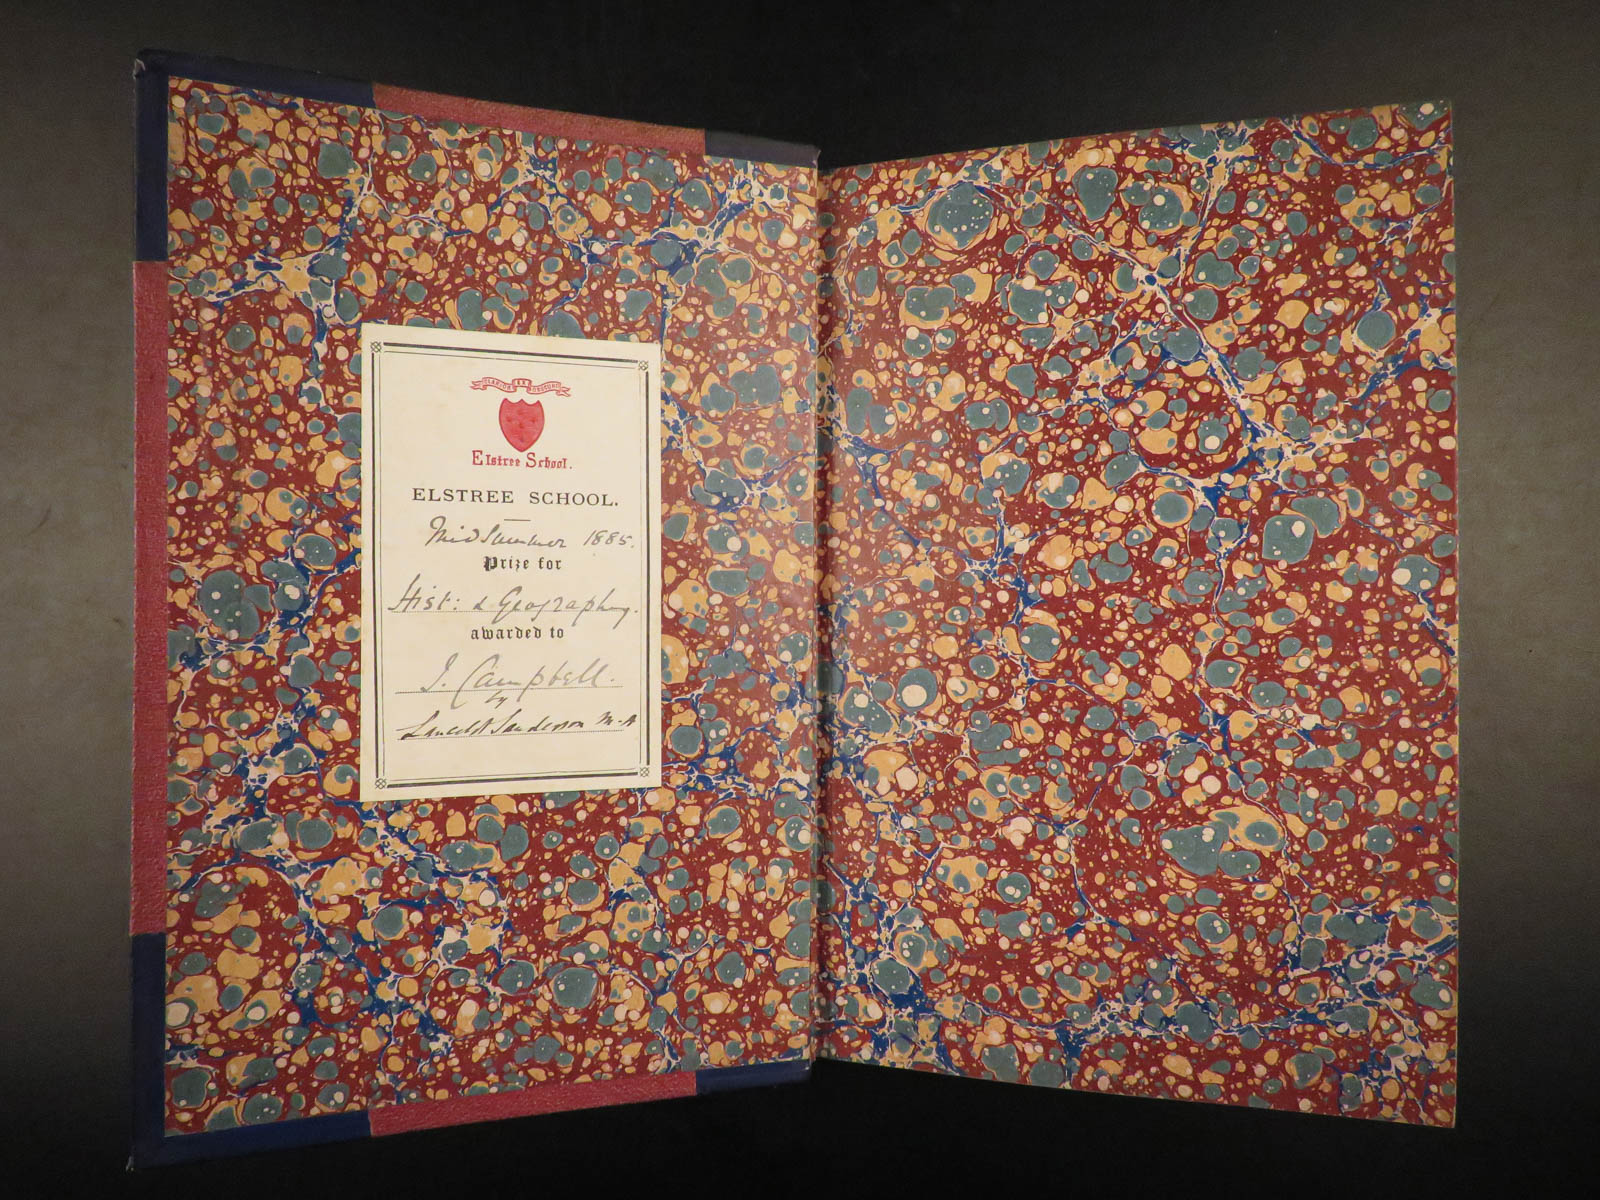 CLARIOR EX OBSCURO
Elstree School.
ELSTREE SCHOOL.
Midsummer 1885.
Prize for
Hist: & Geography.
awarded to
J. Campbell.
by
Lancelot Sanderson M.A